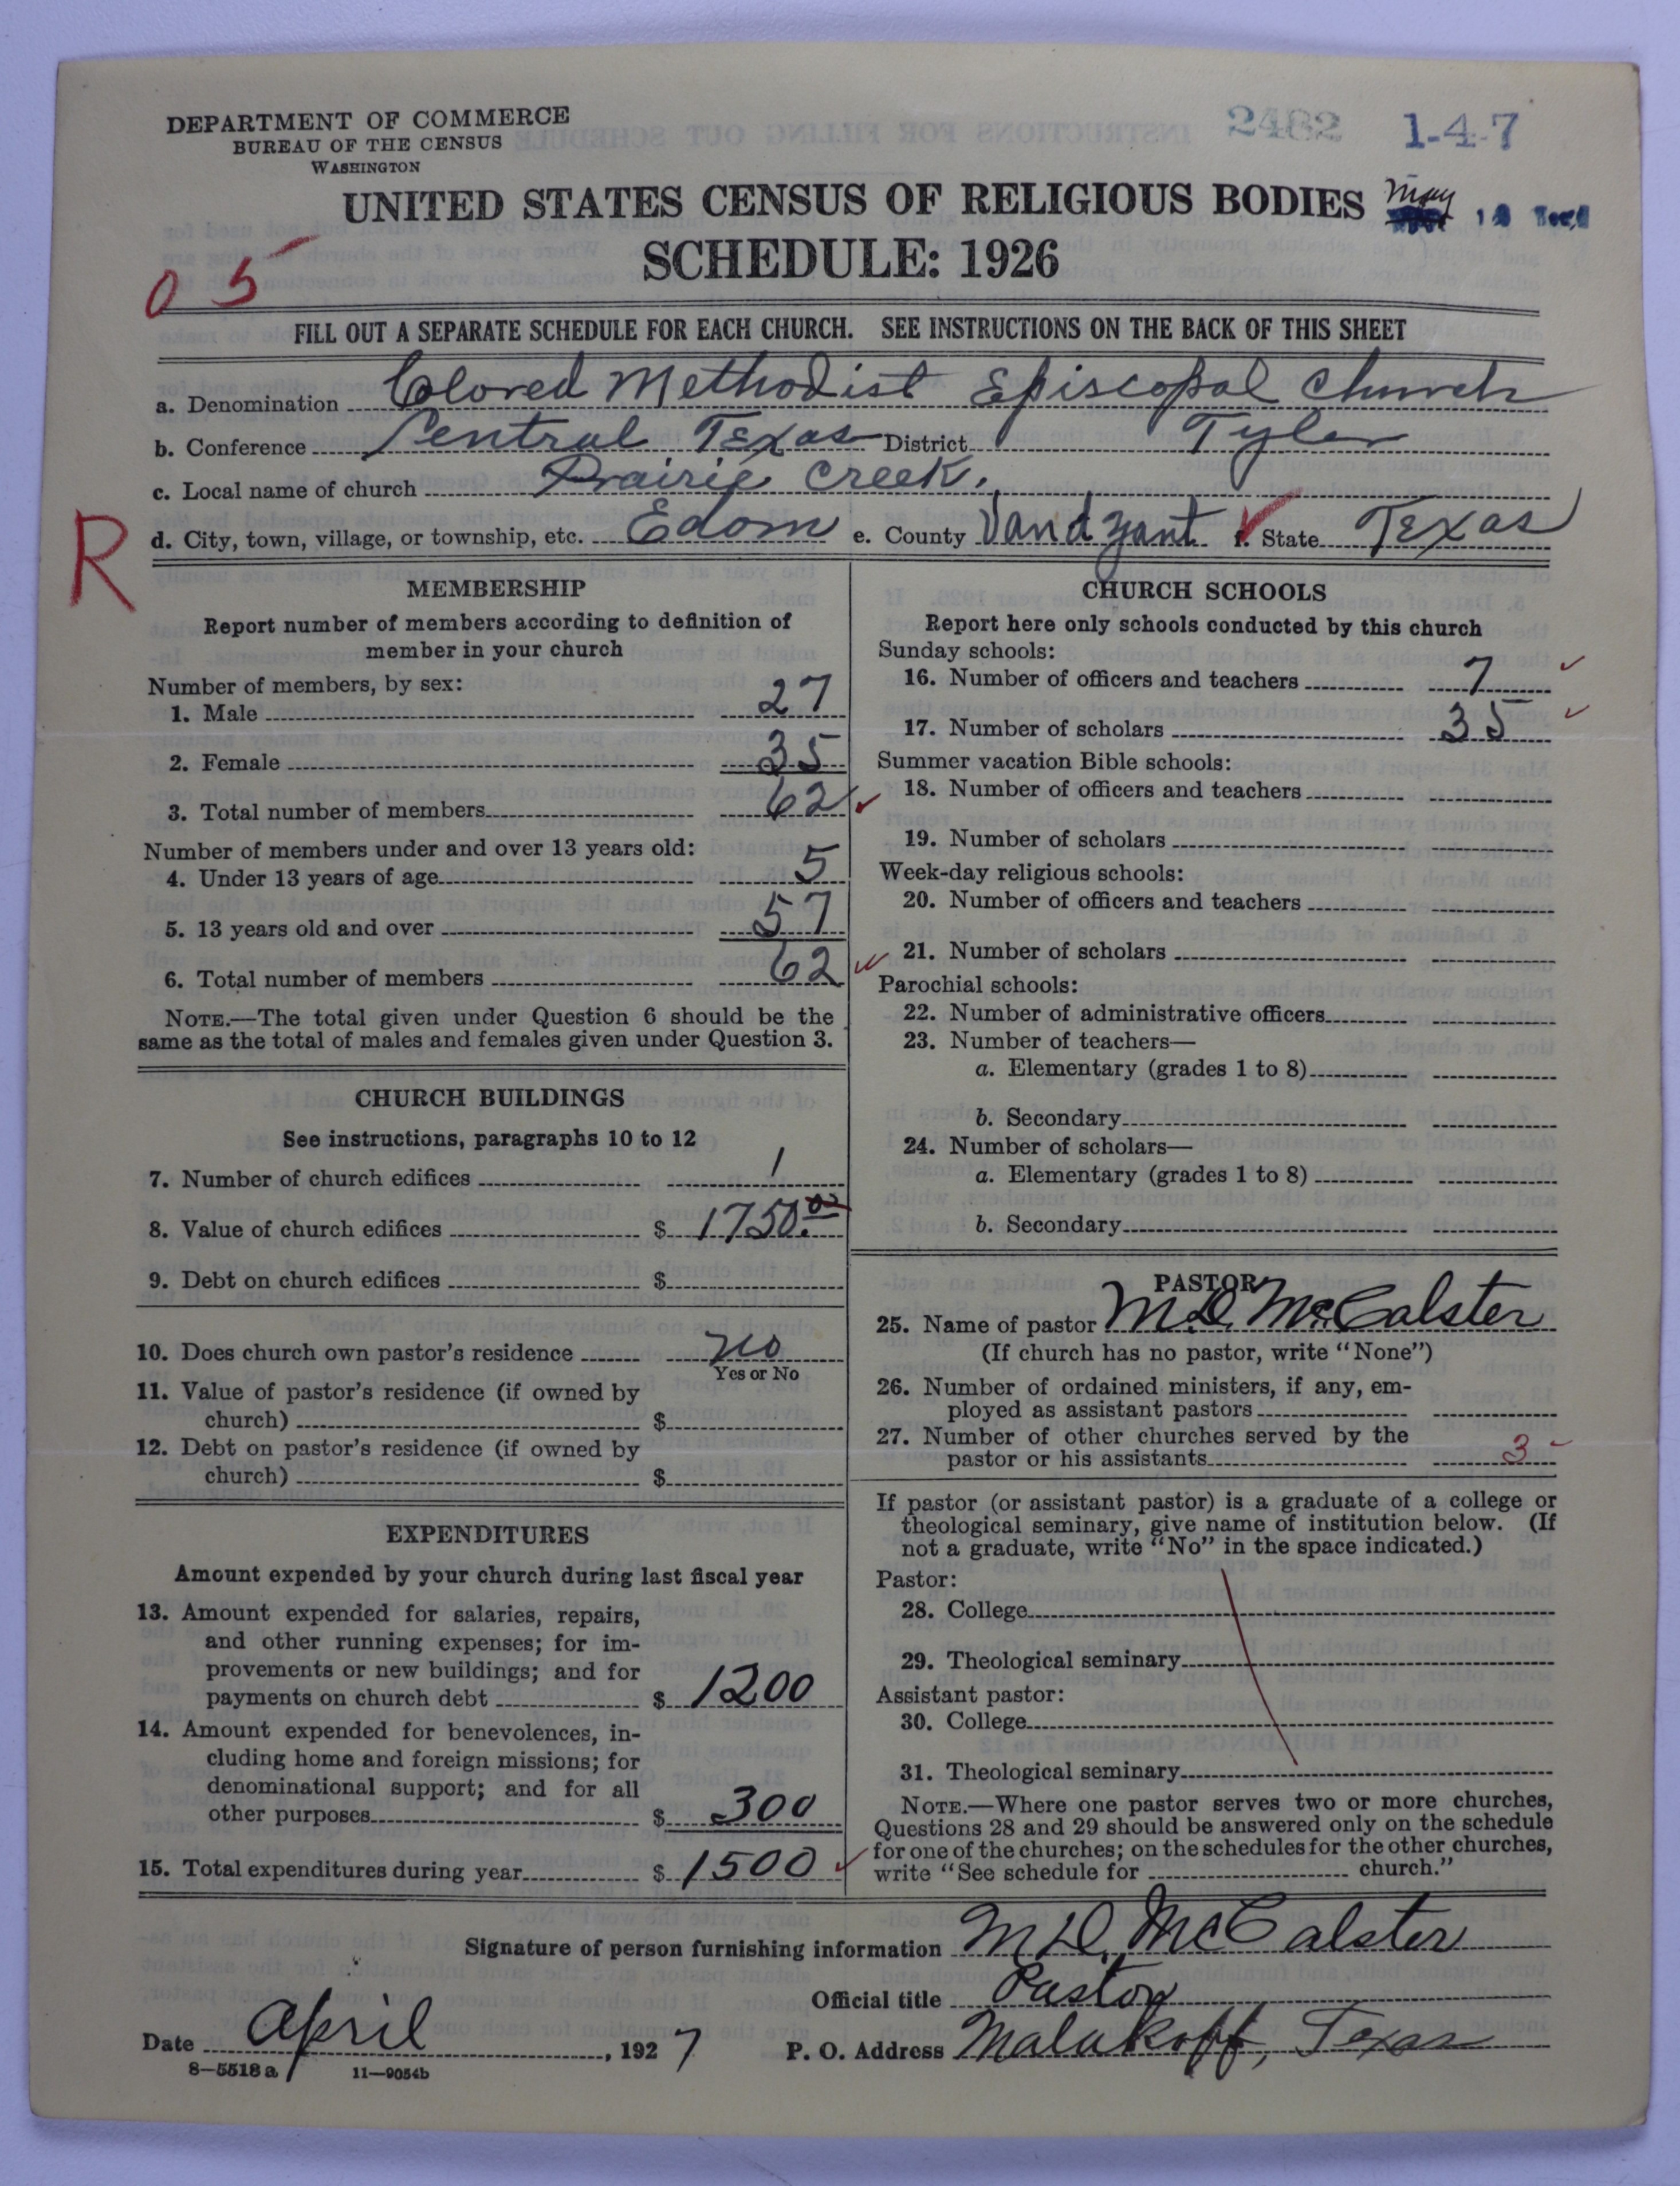 DEPARTMENT OF COMMERCE
BUREAU OF THE CENSUS
WASHINGTON
2482 1-4-7
UNITED STATES CENSUS OF RELIGIOUS BODIES
May
SCHEDULE: 1926
0 5
FILL OUT A SEPARATE SCHEDULE FOR EACH CHURCH. SEE INSTRUCTIONS ON THE BACK OF THIS SHEET
a. Denomination Colored Methodist Episcopal Church
b. Conference Central Texas District Tyler
c. Local name of church Prairie Creek.
R
d. City, town, village, or township, etc. Edom e. County Vandzant f. State Texas
MEMBERSHIP
Report number of members according to definition of
member in your church
Number of members, by sex:
1. Male 27
2. Female 35
3. Total number of members 62
Number of members under and over 13 years old:
4. Under 13 years of age 5
5. 13 years old and over 57
6. Total number of members 62
NOTE.—The total given under Question 6 should be the
same as the total of males and females given under Question 3.
CHURCH BUILDINGS
See instructions, paragraphs 10 to 12
7. Number of church edifices 1
8. Value of church edifices $ 1750.00
9. Debt on church edifices $
10. Does church own pastor's residence no
Yes or No
11. Value of pastor's residence (if owned by
church) $
12. Debt on pastor's residence (if owned by
church) $
EXPENDITURES
Amount expended by your church during last fiscal year
13. Amount expended for salaries, repairs,
and other running expenses; for im-
provements or new buildings; and for
payments on church debt $ 1200
14. Amount expended for benevolences, in-
cluding home and foreign missions; for
denominational support; and for all
other purposes $ 300
15. Total expenditures during year $ 1500
CHURCH SCHOOLS
Report here only schools conducted by this church
Sunday schools:
16. Number of officers and teachers 7
17. Number of scholars 35
Summer vacation Bible schools:
18. Number of officers and teachers
19. Number of scholars
Week-day religious schools:
20. Number of officers and teachers
21. Number of scholars
Parochial schools:
22. Number of administrative officers
23. Number of teachers—
a. Elementary (grades 1 to 8)
b. Secondary
24. Number of scholars—
a. Elementary (grades 1 to 8)
b. Secondary
PASTOR
25. Name of pastor M.D. McCalster
(If church has no pastor, write "None")
26. Number of ordained ministers, if any, em-
ployed as assistant pastors
27. Number of other churches served by the
pastor or his assistants 3
If pastor (or assistant pastor) is a graduate of a college or
theological seminary, give name of institution below. (If
not a graduate, write "No" in the space indicated.)
Pastor:
28. College
29. Theological seminary
Assistant pastor:
30. College
31. Theological seminary
NOTE.—Where one pastor serves two or more churches,
Questions 28 and 29 should be answered only on the schedule
for one of the churches; on the schedules for the other churches,
write "See schedule for church."
Signature of person furnishing information M.D. McCalster
Official title Pastor
Date April, 1927 P. O. Address Malakoff, Texas
8—5518 a 11—9054b